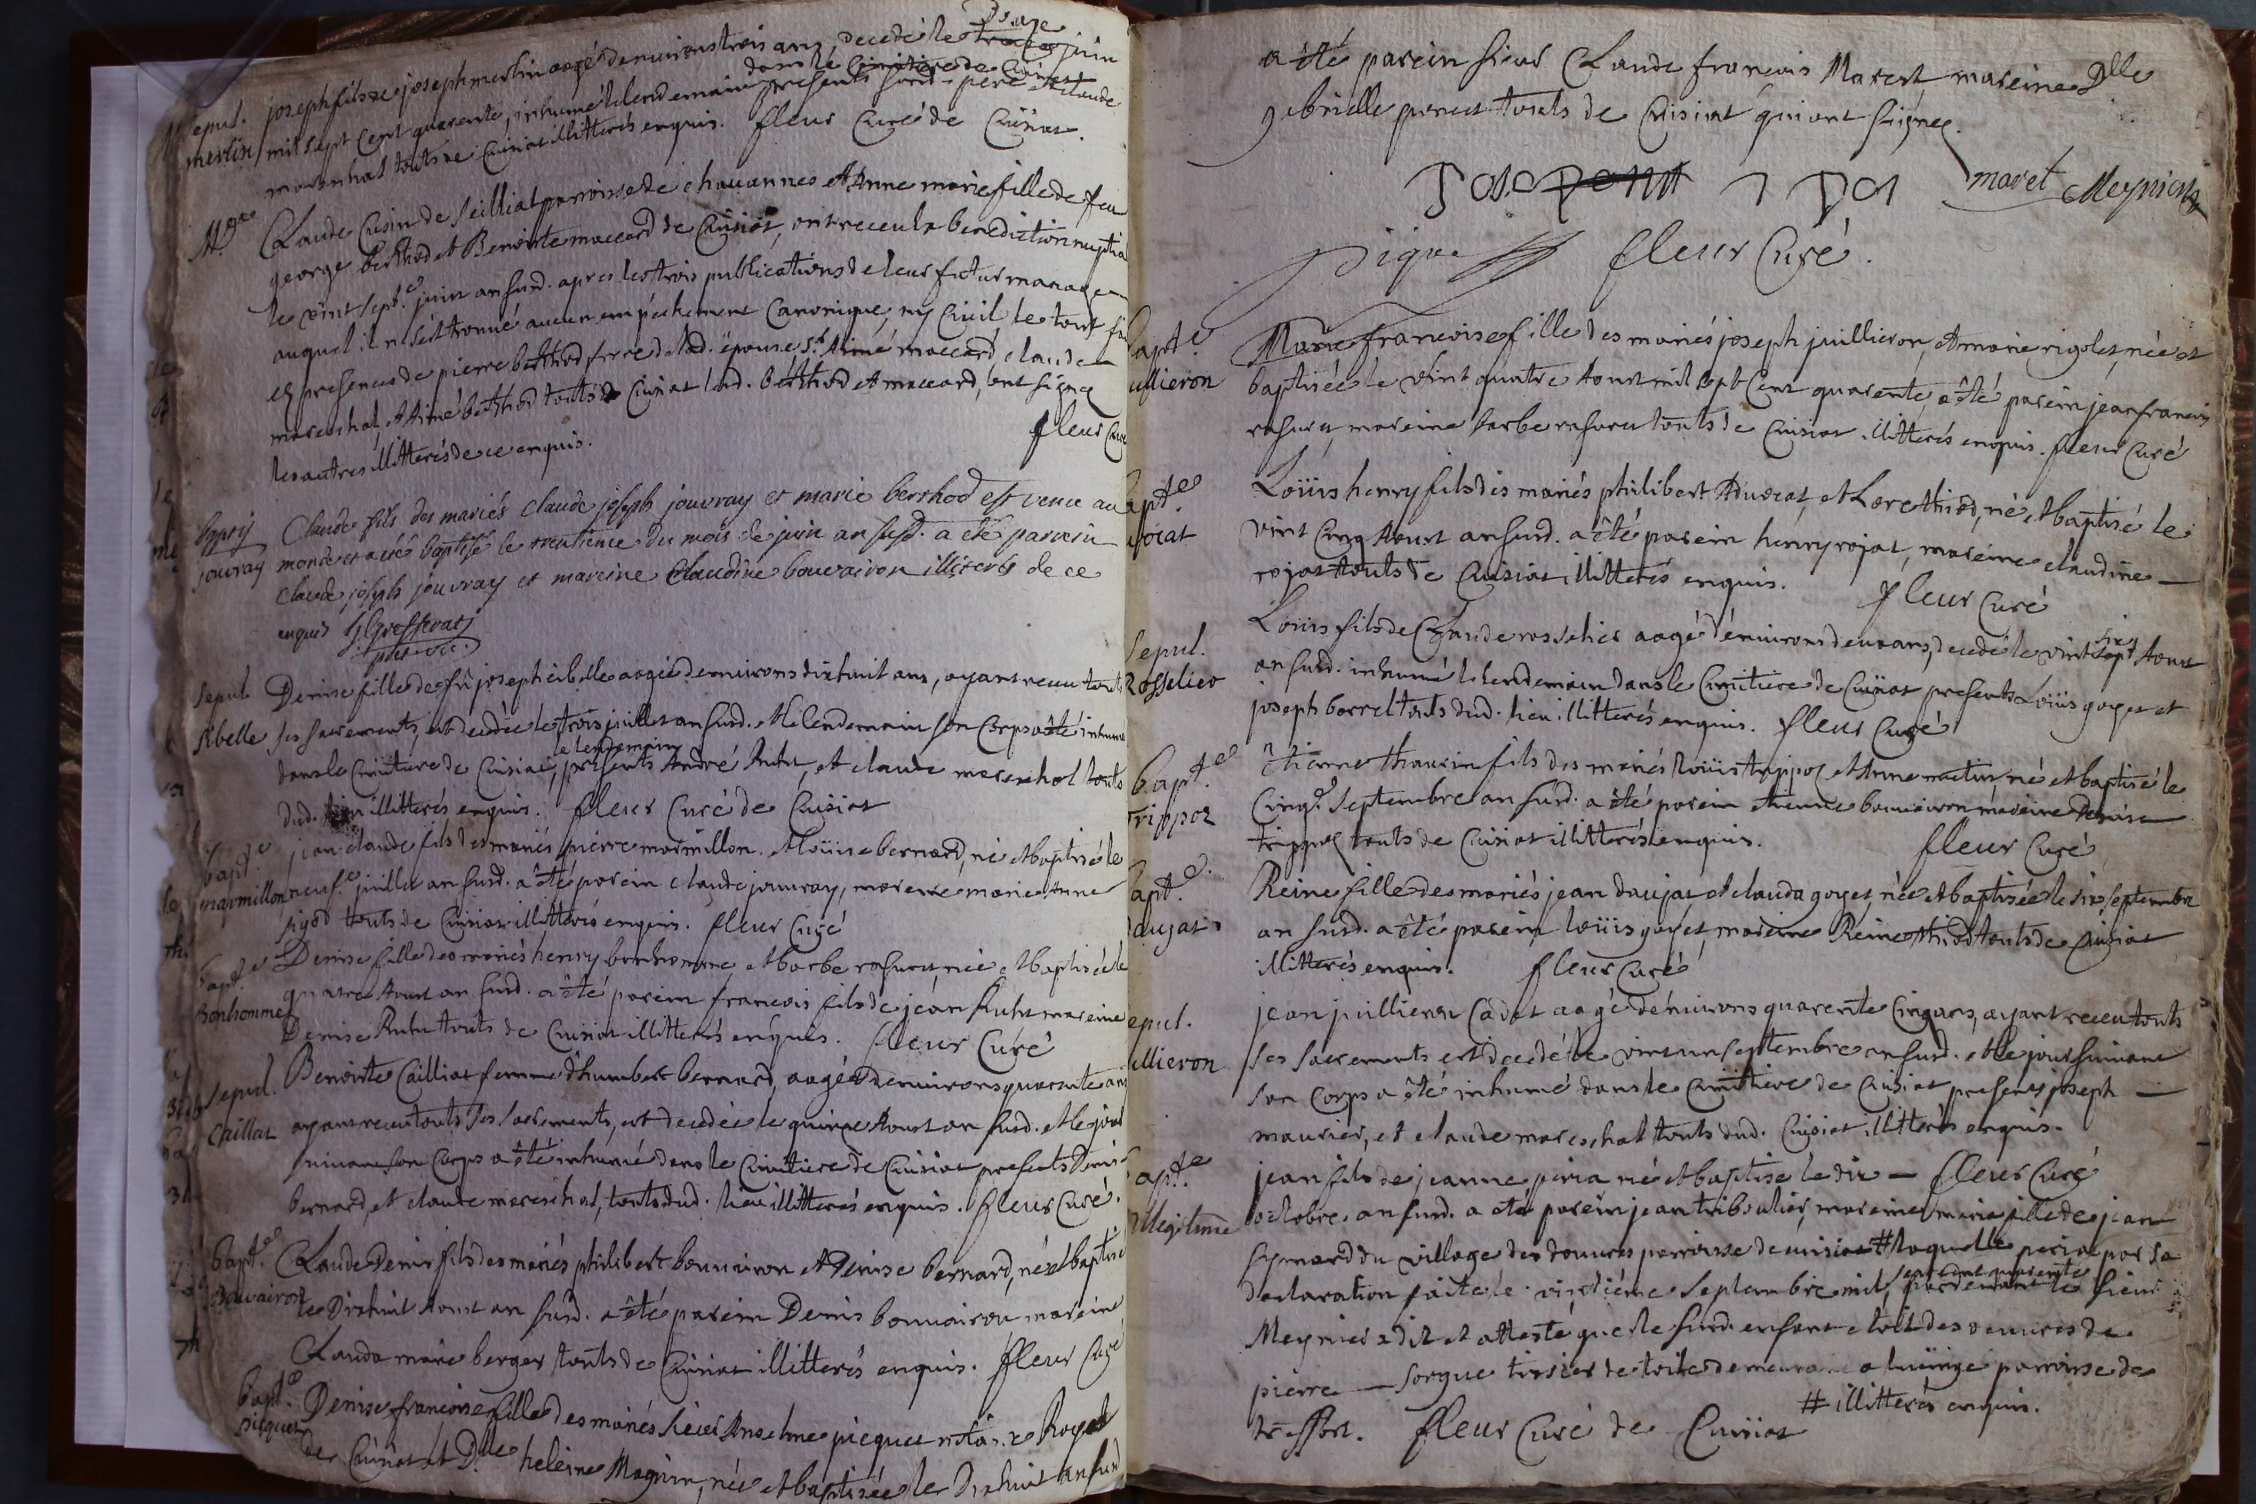 Sepul. joseph fils de joseph merlin aagé d'environs trois ans, decedé le juin
merlin mil sept cent quarente, inhumé le lendemain dans le Cimitiere de Cuisiat presents son pere et claude
mareschal touts de Cuisiat illitterés enquis. fleur Curé de Cuisiat.
M.ge Claude Cusin de Seilliat parroisse de chavannes et Anne marie fille de feu
george berthod et Benoite maccard de Cuisiat, ont receu la benediction nuptia
le vint sept.e juin an susd. apres les trois publications de leur futur mariage
auquel il n'sest trouvé aucun empéchement Canonique, ny Civil le tout fai
en presences de pierre berthod frere de lad. épouse, S.r Aimé maccard claude
mareschal, et Aimé berthod touts de Cuisiat lesd. berthod et maccard, ont signez
les autres illitterés de ce enquis. fleur Curé
bapt. Claude fils des mariés claude joseph jouvray et marie berthod est venu au
jouvray monde et a été baptisé le trentieme du mois de juin an susd. a été parrein
claude joseph jouvray et mareine Claudine bouvairon illiterés de ce
enquis
Sepul. Denise fille de fû joseph sibelle aagée d'environs dixhuit ans, ayant receu touts
sibelle ses sacrements, est decedée le trois juillet an susd. et le lendemain son Corps a été inhumé
le lendemain
dans le Cimitiere de Cuisiat, presents André Rutu, et claude mareschal touts
dud. lieu illitterés enquis. fleur Curé de Cuisiat
bapt.e jean claude fils des mariés pierre marmillon et Loüise bernard, né et baptisé le
marmillon neuf.e juillet an susd. a êté parein claude jouvray, mareine marie Anne
pigod touts de Cuisiat illitterés enquis. fleur Curé
bapt.e Denise fille des mariés henry bonhomme, et barbe rasurer née et baptisée le
Bonhomme quatre Aoust an susd. a êté parein francois fils de jean Rutu mareine
Denise Rutu touts de Cuisiat illitterés enquis. fleur Curé
Sepul. Benoite Cailliat femme d'humbert bernard, aagée d'environs quarente ans
Caillat ayant receu touts ses sacrements, est decedée le quinze Aoust an susd. et le jour
suivant son Corps a êté inhumé dans le Cimitiere de Cuisiat presents Denis
bernard, et claude mareschal, touts dud. lieu illitterés enquis. fleur Curé.
bapt.e Claude Denis fils des mariés philibert bouvairon et Denise bernard, né et baptisé
Bouvairon le Dixhuit Aoust an susd. a êté parein Denis bouvairon mareine
Clauda marie berger touts de Cuisiat illitterés enquis. fleur Curé
bapt.e Denise francoise fille des mariés Sieur Anselme picquet notaire Royal
picquet de Cuisiat et D.lle heleine Magnin, née et baptisée le Dixhuit an susd
a êté parein sieur Claude francois Maret, mareine D.lle
gabrielle touts de Cuisiat qui ont signez.
maret Meynier
fleur Curé.
bapt.e Marie francoise fille des mariés joseph juillieron, et marie rigolet, née et
juillieron baptisée le vint quatre Aoust mil sept Cent quarente, a êté parein jean francois
rasurer, mareine barbe rasurer touts de Cuisiat illitterés enquis. fleur Curé
bapt.e Loüis henry fils des mariés philibert Advocat, et Lore thiod, né et baptisé le
advocat vint Cinq Aoust an susd. a êté parein henry rojat, mareine claudine
rojat touts de Cuisiat illitterés enquis. fleur Curé
Sepul. Loüis fils de Claude rosselier aagé d'environs deux ans, decedé le vint six Aoust
Rosselier an susd. inhumé le lendemain dans le Cimitiere de Cuisiat presents Loüis goyet et
joseph borrel touts dud. lieu illitterés enquis. fleur Curé
bapt.e Etienne thaurin fils des mariés Loüis trippoz et Anne né et baptisé le
Trippoz Cinq.e Septembre an susd. a êté parein etienne bouvairon mareine Denise
trippoz touts de Cuisiat illitterés enquis. fleur Curé
bapt.e Reine fille des mariés jean daujat et clauda goyet, née et baptisée le six Septembre
daujat an susd. a êté parein Loüis goyet, mareine Reine thiod touts de Cuisiat
illitterés enquis. fleur Curé
Sepul. jean juillieron Cadet aagé d'environs quarente Cinq ans, ayant receu touts
juillieron ses sacrements est decedé le vint un septembre an susd. et le jour suivant
son Corps a êté inhumé dans le Cimitiere de Cuisiat presents joseph
maurier, et claude mareschal touts dud. Cuisiat illitterés enquis.
bapt.e jean fils de jeanne peria né et baptisé le dix — fleur Curé
illegitime octobre an susd. a été parein jean triboulier, mareine marie fille de jean
du village des parroisse de cuisiat # laquelle peria par sa
declaration faite le vintiéme Septembre mil sept cent quarente le sieur
Meynier a dit et attesté que le susd. enfant etoit des oeuvres de
pierre — sorgue tissier de toile demeurant a parroisse de
treffort. fleur Curé de Cuisiat # illitterés enquis.